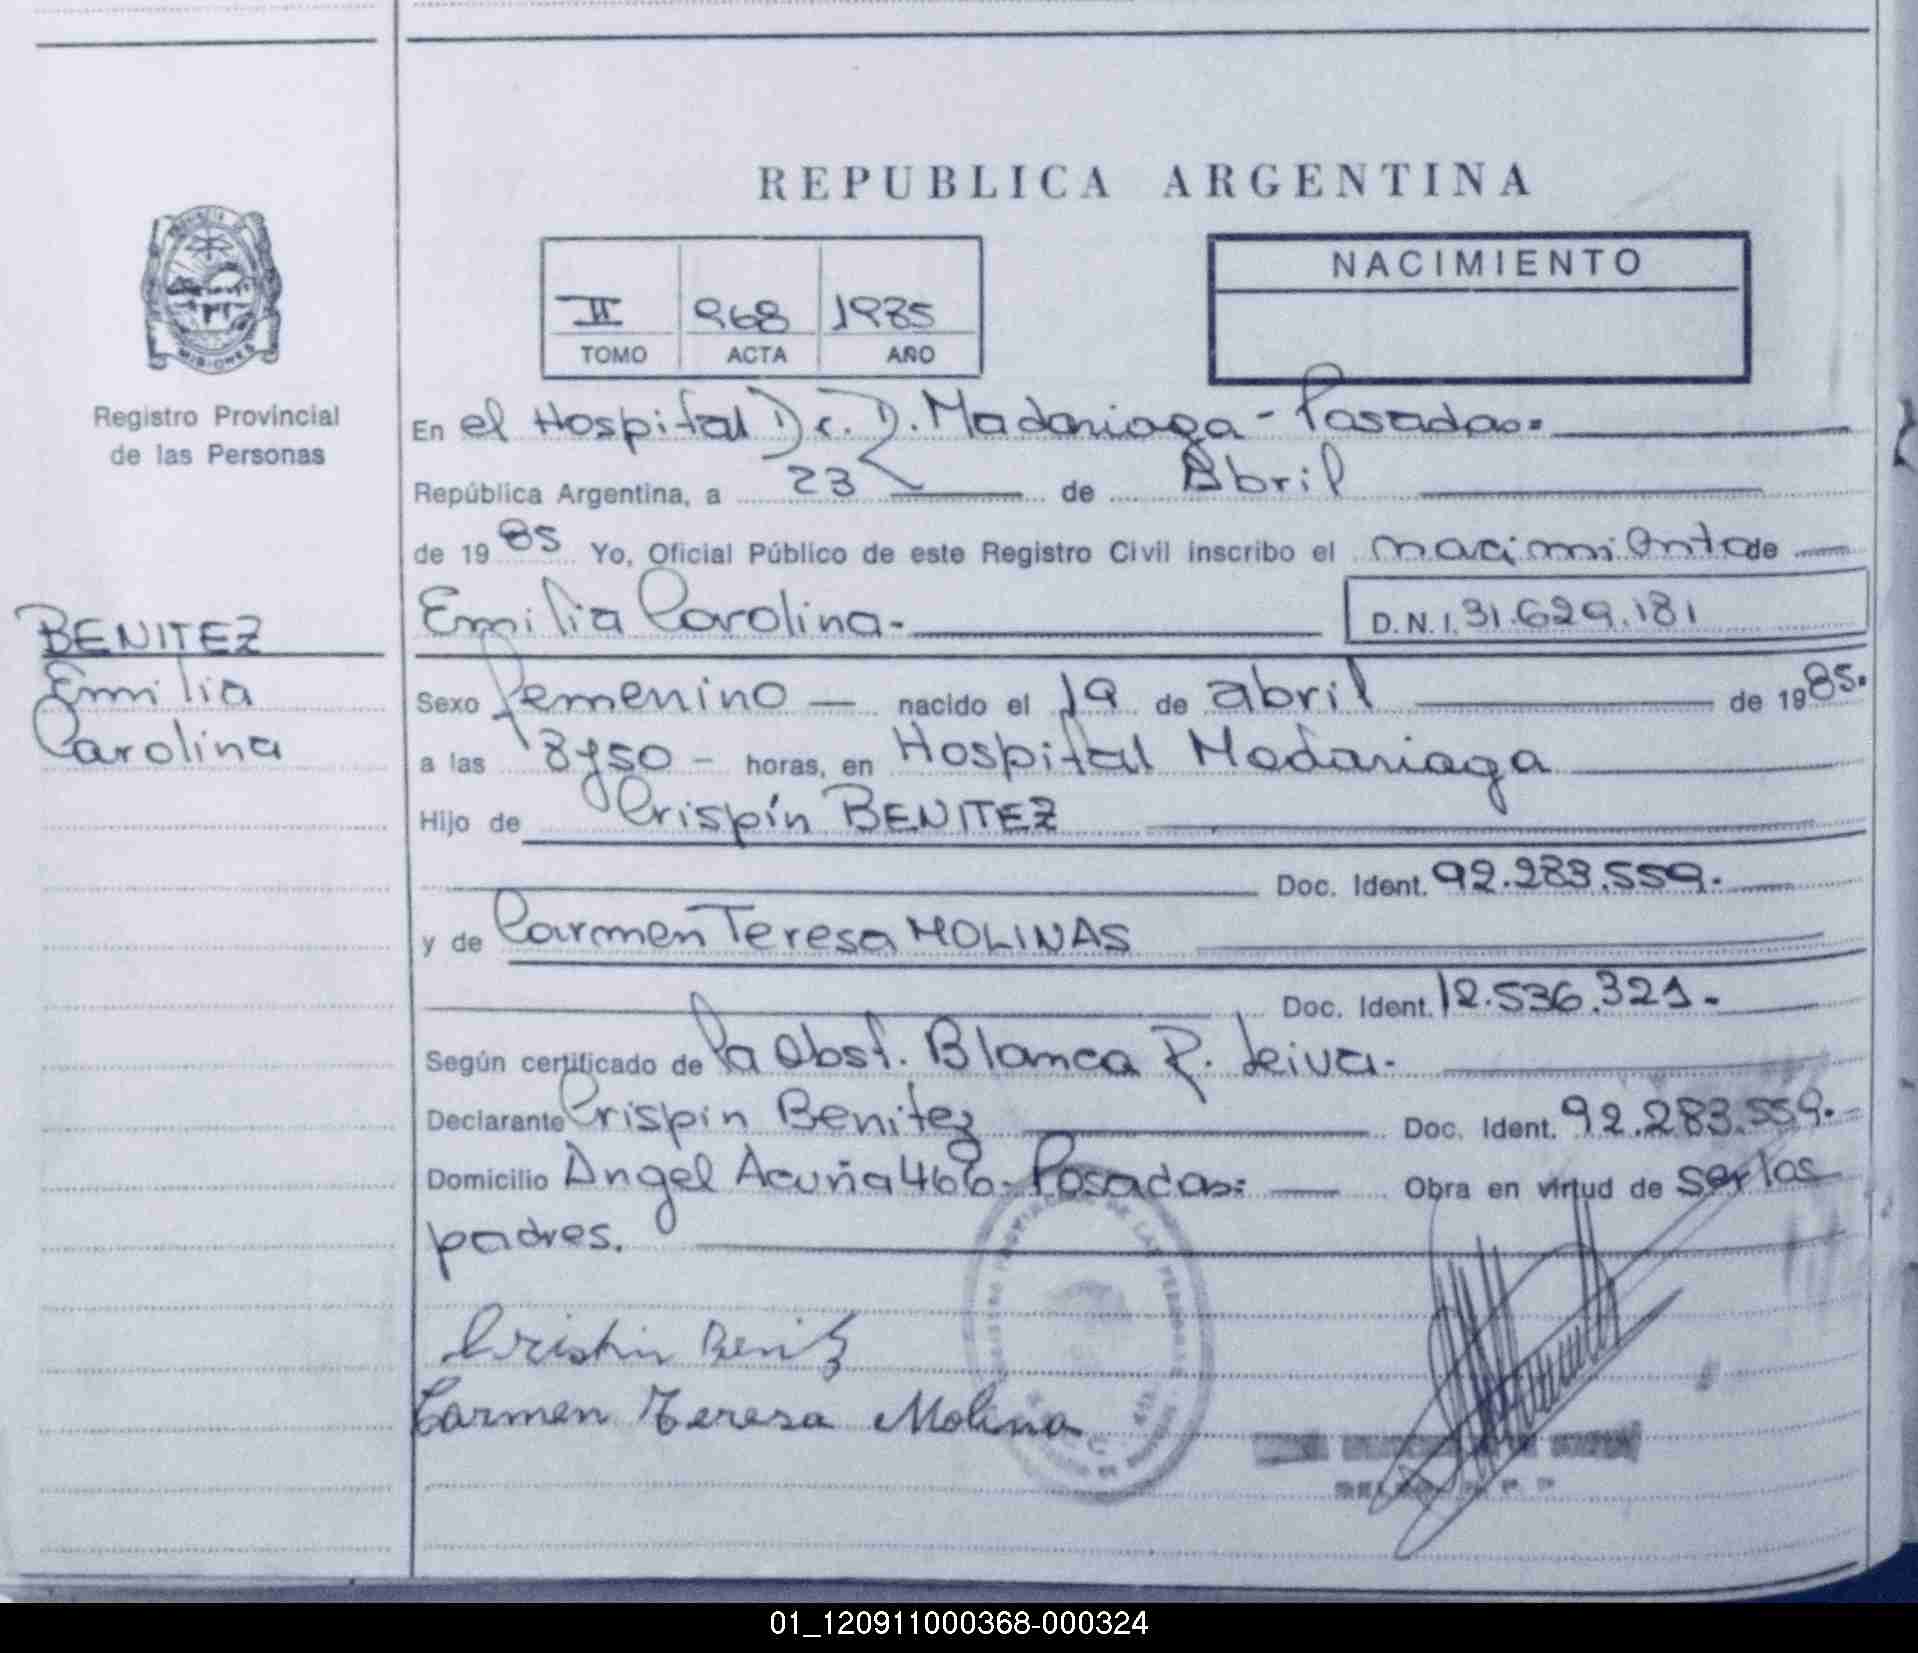 REPUBLICA ARGENTINA
NACIMIENTO
II 968 1985
TOMO ACTA AÑO
MISIONES
Registro Provincial
de las Personas
En el Hospital Dr. D. Madariaga - Posadas.
República Argentina, a 23 de Abril
de 1985 Yo, Oficial Público de este Registro Civil inscribo el nacimiento de
Emilia Carolina.- D.N.I. 31.629.181
BENITEZ
Emilia
Carolina
Sexo femenino — nacido el 19 de abril de 1985.
a las 8y50 - horas, en Hospital Madariaga
Hijo de Crispín BENITEZ
Doc. Ident. 92.283.559.
y de Carmen Teresa MOLINAS
Doc. Ident. 12.536.321.
Según certificado de la Obst. Blanca R. Leiva.
Declarante Crispín Benitez Doc. Ident. 92.283.559.
Domicilio Angel Acuña 466- Posadas. Obra en virtud de ser los
padres.
REGISTRO PROVINCIAL DE LAS PERSONAS
Crispin Benitez
Carmen Teresa Molina
01_120911000368-000324